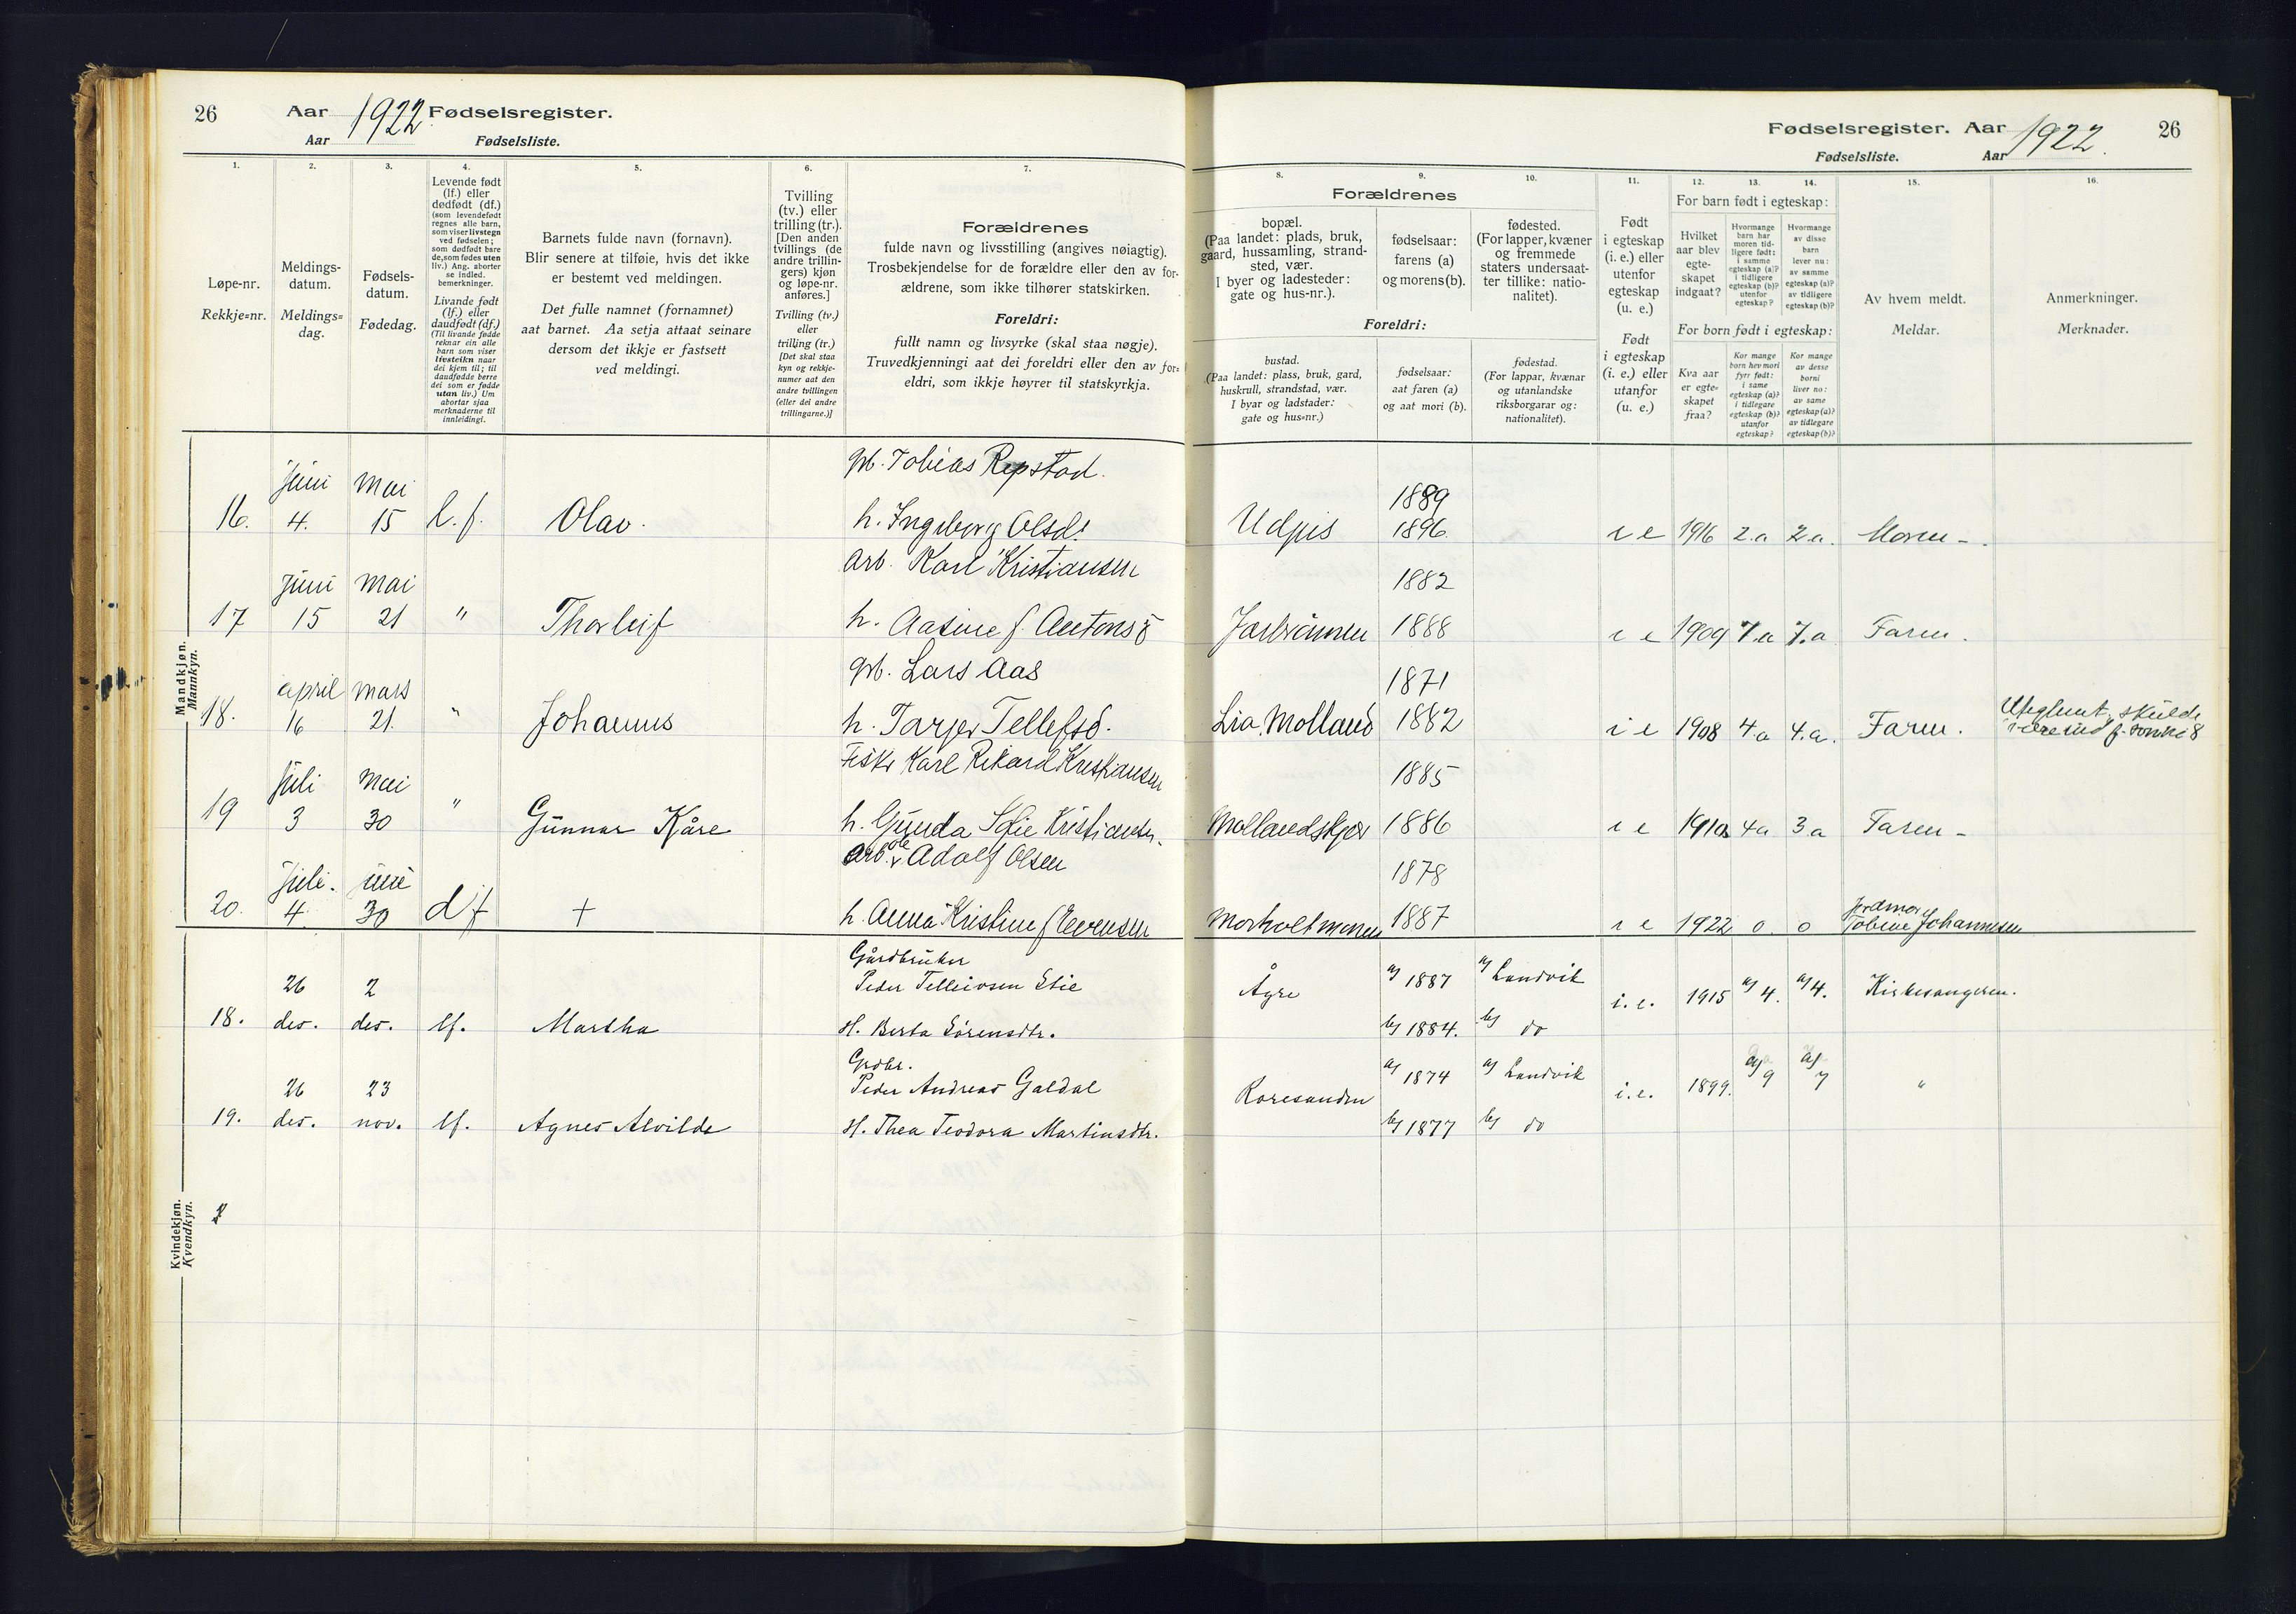 26
Aar 1922 Fødselsregister.
Aar
Fødselsliste.
1.
2.
3.
4.
5.
6.
7.
Løpe-nr.
Rekkje=nr.
Meldings-
datum.
Meldings=
dag.
Fødsels-
datum.
Fødedag.
Levende født
(lf.) eller
dødfødt (df.)
(som levendefødt
regnes alle barn,
som viser livstegn
ved fødselen;
som dødfødt bare
de, som fødes uten
liv.) Ang. aborter
se indled.
bemerkninger.
Livande født
(lf.) eller
daudfødt (df.)
(Til livande fødde
reknar ein alle
barn som viser
livsteikn naar
dei kjem til; til
daudfødde berre
dei som er fødde
utan liv.) Um
abortar sjaa
merknaderne til
innleidingi.
Barnets fulde navn (fornavn).
Blir senere at tilføie, hvis det ikke
er bestemt ved meldingen.
Det fulle namnet (fornamnet)
aat barnet. Aa setja attaat seinare
dersom det ikkje er fastsett
ved meldingi.
Tvilling
(tv.) eller
trilling (tr.).
[Den anden
tvillings (de
andre trillin-
gers) kjøn
og løpe-nr.
anføres.]
Tvilling (tv.)
eller
trilling (tr.)
[Det skal staa
kyn og rekkje-
numer aat den
andre tvillingen
(eller dei andre
trillingarne.)]
Forældrenes
fulde navn og livsstilling (angives nøiagtig).
Trosbekjendelse for de forældre eller den av for-
ældrene, som ikke tilhører statskirken.
Foreldri:
fullt namn og livsyrke (skal staa nøgje).
Truvedkjenningi aat dei foreldri eller den av for-
eldri, som ikkje høyrer til statskyrkja.
Mandkjøn.
Mannkyn.
gb. Tobias Repstad.
16. juni 4. mai 15 l.f. Olav. h. Ingeborg Olsd.
arb. Karl Kristiansen
17 juni 15 mai 21 " Thorleif h. Aasine f. Antons
gb. Lars Aas
18. april 16 mars 21. " Johannes h. Tarjer Tellefsd.
Fisker Karl Rikard Kristiansen
19 juli 3 mai 30 " Gunnar Kåre h. Gunda Sofie Kristiansen.
arb. Ole Adolf Olsen
20. juli. 4. juni 30 df + h. Anna Kristine f Evensen
Kvindekjøn.
Kvendkyn.
Gårdbruker
Peder Telleivsen Stie
18. 26 des. 2 des. lf. Martha H. Berta Sørensdtr.
Grdbr.
Peder Andreas Galdal
19. 26 des. 23 nov. lf. Agnes Alvilde H. Thea Teodora Martinsdtr.
Fødselsregister. Aar 1922. 26
Fødselsliste. Aar
8.
9.
10.
11.
12.
13.
14.
15.
16.
Forældrenes
bopæl.
(Paa landet: plads, bruk,
gaard, hussamling, strand-
sted, vær.
I byer og ladesteder:
gate og hus-nr.).
fødselsaar:
farens (a)
og morens (b).
fødested.
(For lapper, kvæner
og fremmede
staters undersaat-
ter tillike: natio-
nalitet).
Foreldri:
bustad.
(Paa landet: plass, bruk, gard,
huskrull, strandstad, vær.
I byar og ladstader:
gate og hus=nr.)
fødselsaar:
aat faren (a)
og aat mori (b).
fødestad.
(For lappar, kvænar
og utanlandske
riksborgarar og:
nationalitet).
Født
i egteskap
(i. e.) eller
utenfor
egteskap
(u. e.)
Født
i egteskap
(i. e.) eller
utanfor
(u. e.)
For barn født i egteskap:
Hvilket
aar blev
egte-
skapet
indgaat?
Hvormange
barn har
moren tid-
ligere født:
i samme
egteskap (a)?
i tidligere
egteskap (b)?
utenfor
egteskap?
Hvormange
av disse
barn
lever nu:
av samme
egteskap (a)?
av tidligere
egteskap (b)?
For born født i egteskap:
Kva aar
er egte-
skapet
fraa?
Kor mange
born hev mori
fyrr født:
i same
egteskap (a)?
i tidlegare
egteskap (b)?
utanfor
egteskap?
Kor mange
av desse
borni
liver no:
av same
egteskap (a)?
av tidlegare
egteskap (b)?
Av hvem meldt.
Meldar.
Anmerkninger.
Merknader.
1889
Udpis 1896. i e 1916 2.a 2.a. Moren -
1882
1888 i e 1909 7.a 7.a Faren.
1871
Lia. Molland 1882 i e 1908 4.a 4.a. Faren.
1885
Mollandskjær 1886 i e 1910 4a 3 a Faren -
1878
Morholtmoen 1887 i e 1922 0. 0 Jordmor Tobine Johannesen
Ågre a) 1887 a) Landvik i.e. 1915 a) 4. a) 4. Kirkesangeren.
b) 1884. b) do
Roresanden a) 1874 a) Landvik i.e. 1899. a) 9 a) 7 "
b) 1877 b) do